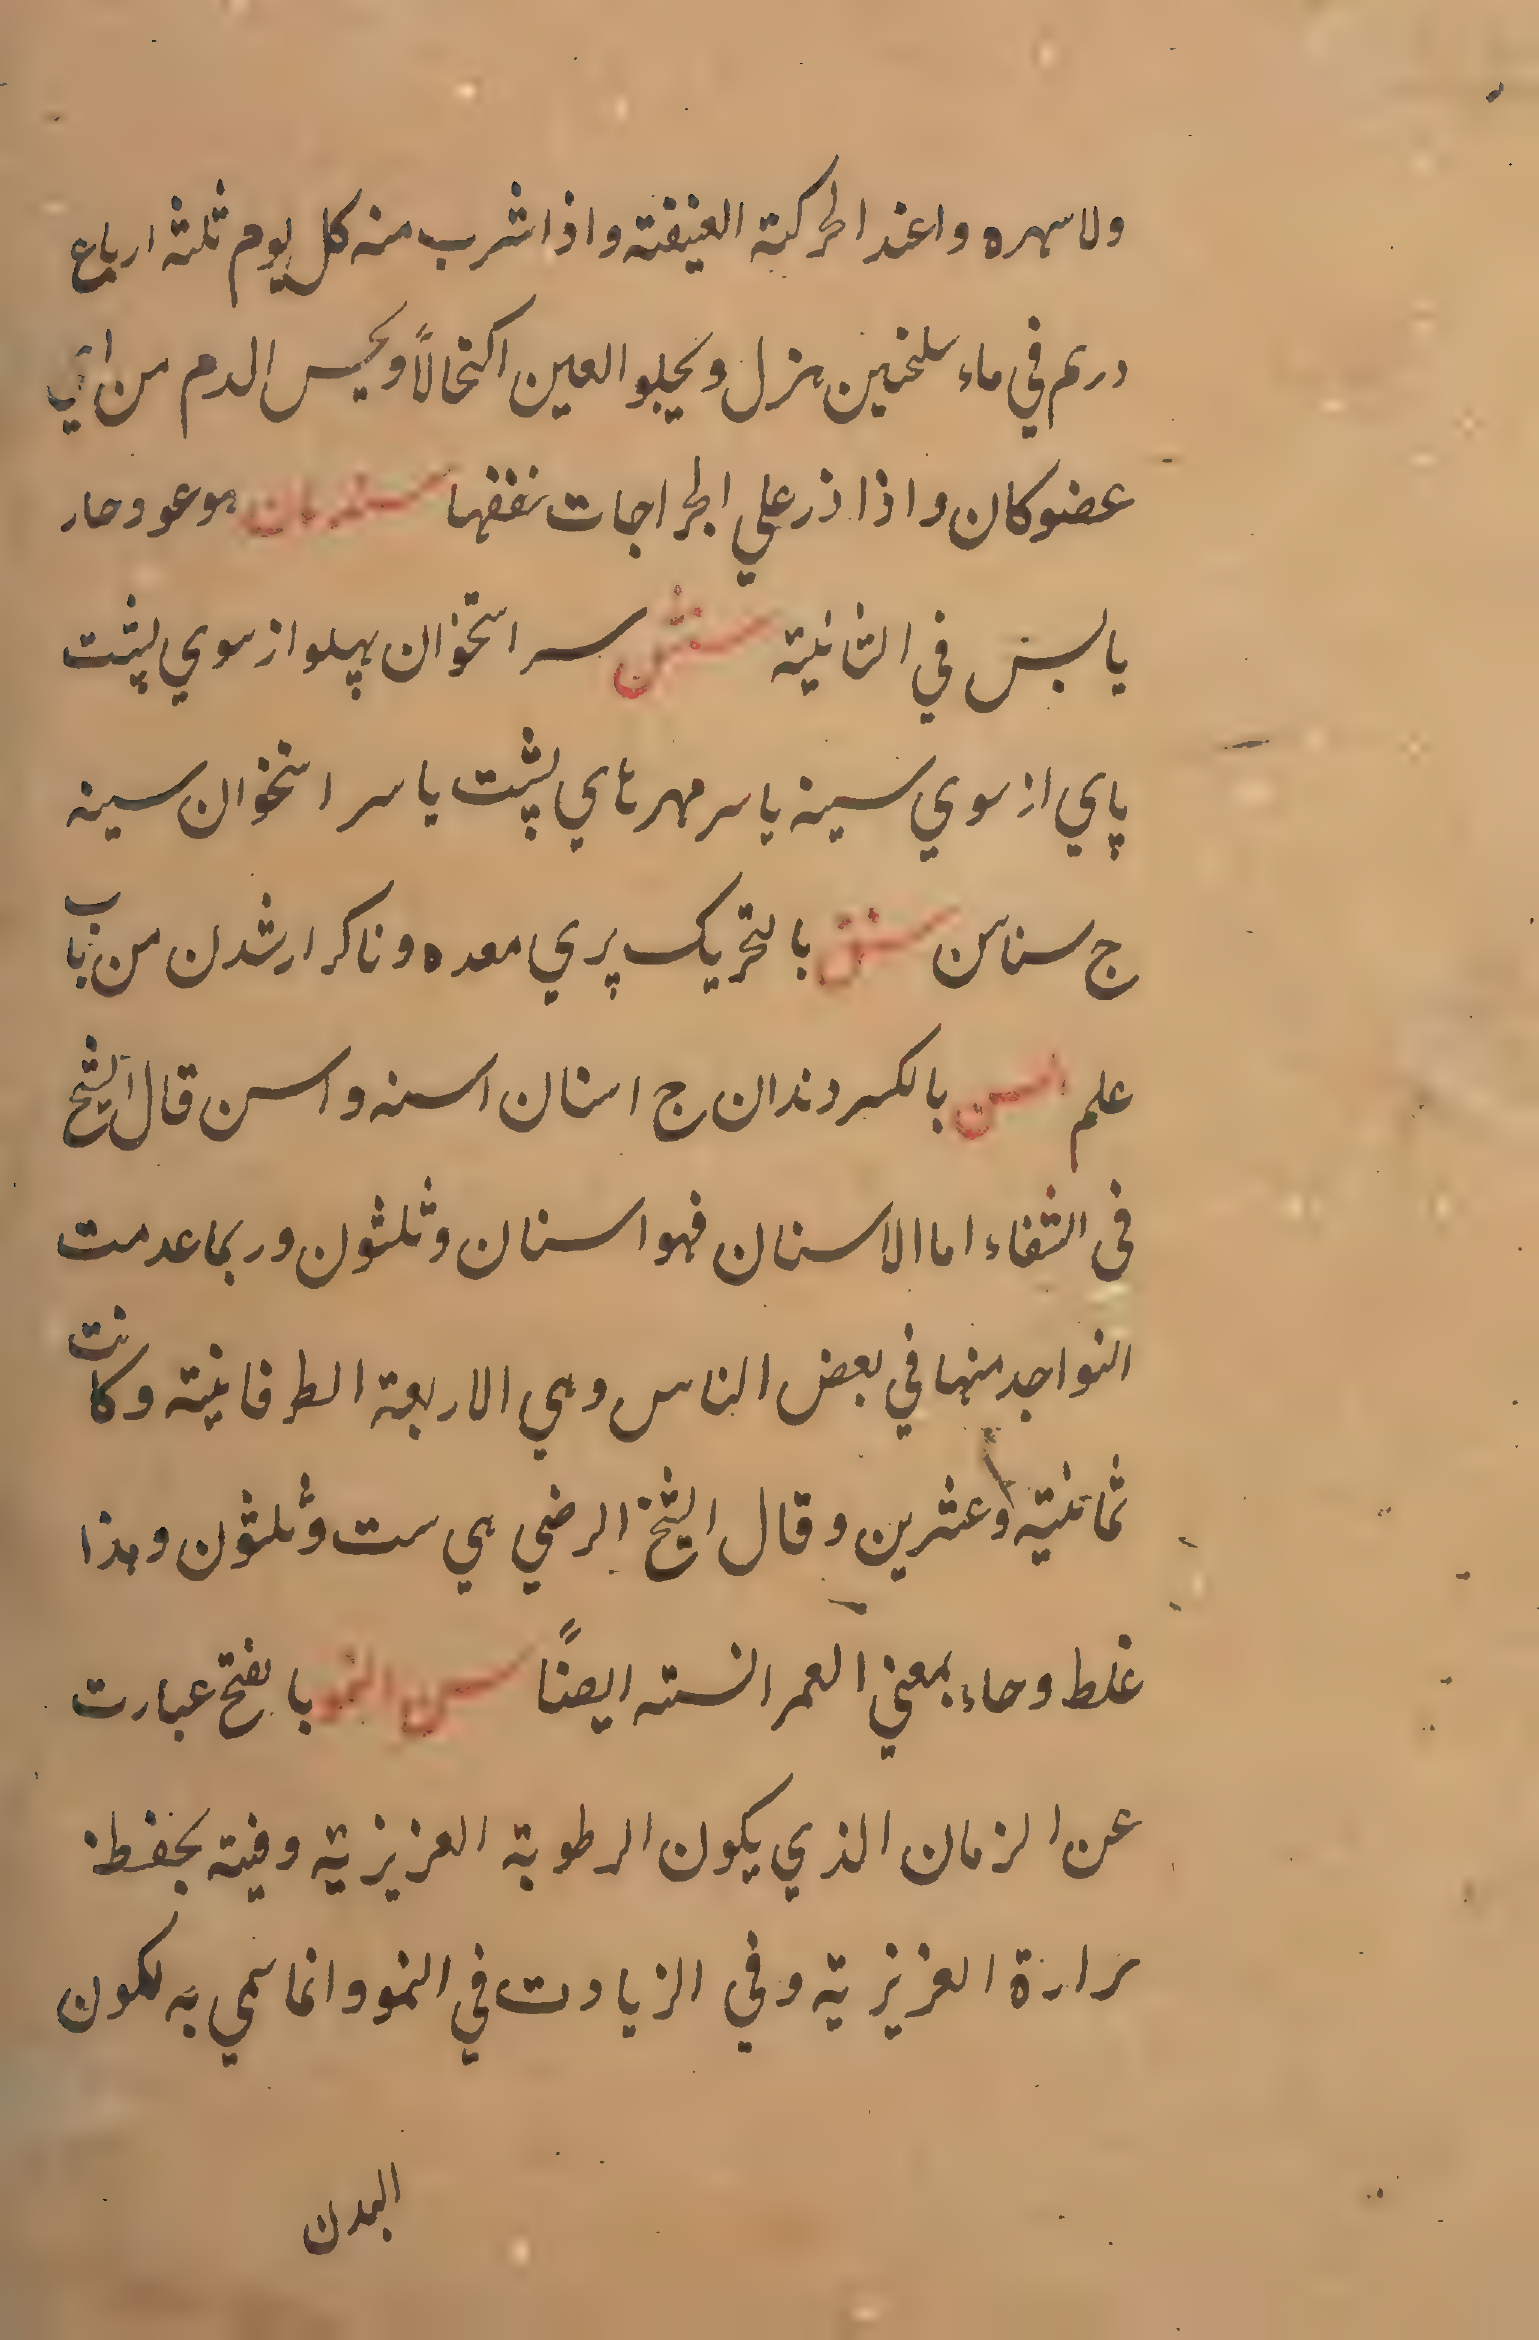 ولا سهره واعند الحركته العنيفته واذا شرب منه كل يوم ثلثه ارباع
درهم في ماء سلخبين هزل ويجلو العين اكتحالاً ويحبس الدم من اي
عضو كان واذا ذر علي الجراجات نفعها هو عود حار
يابس في الثانيته سنشن سر استخوان پهلو از سوي پشت
پاي از سوي سينه يا سر مهرهاي پشت يا سر استخوان سينه
ج سناسن سنق بالتحريك پري معده وناكرار شدن من باب
علم السن بالكسر دندان ج اسنان اسنه واسن قال الشيخ
في الشفاء اما الاسنان فهو اسنان وثلثون وربما عدمت
النواجد منها في بعض الناس وهي الاربعة الطرفانيته وكانت
ثمانيته وعشرين وقال الشيخ الرضي هي ست وثلثون وهذا
غلط وجاء بمعني العمر انسته ايضاً سن النمو بالفتح عبارت
عن الزمان الذي يكون الرطوبة العزيزية وفيته بحفظ
حرارة العزيزية وفي الزيادت في النمو وانما سمي به لكون
البدن